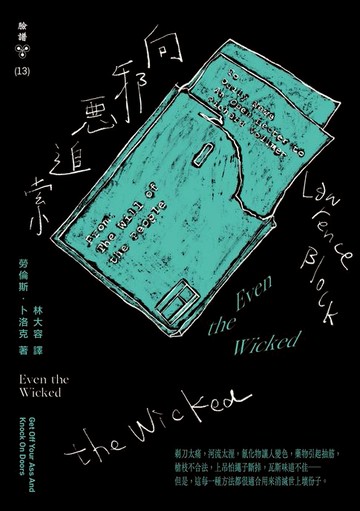 臉譜
(13)
向邪惡追索
From:
The Will of
the people
Lawrence Block
Even
the
Wicked
勞倫斯・卜洛克 著
林大容 譯
Even the
Wicked
Get Off Your Ass And
Knock On Doors
the Wicked
剃刀太痛，河流太溼，氰化物讓人變色，藥物引起抽筋，
槍枝不合法，上吊怕繩子斷掉，瓦斯味道不佳——
但是，這每一種方法都很適合用來消滅世上壞份子。